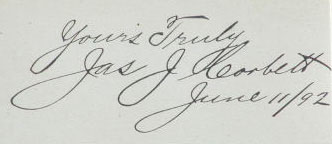 Yours Truly
Jas J Corbett
June 11/92